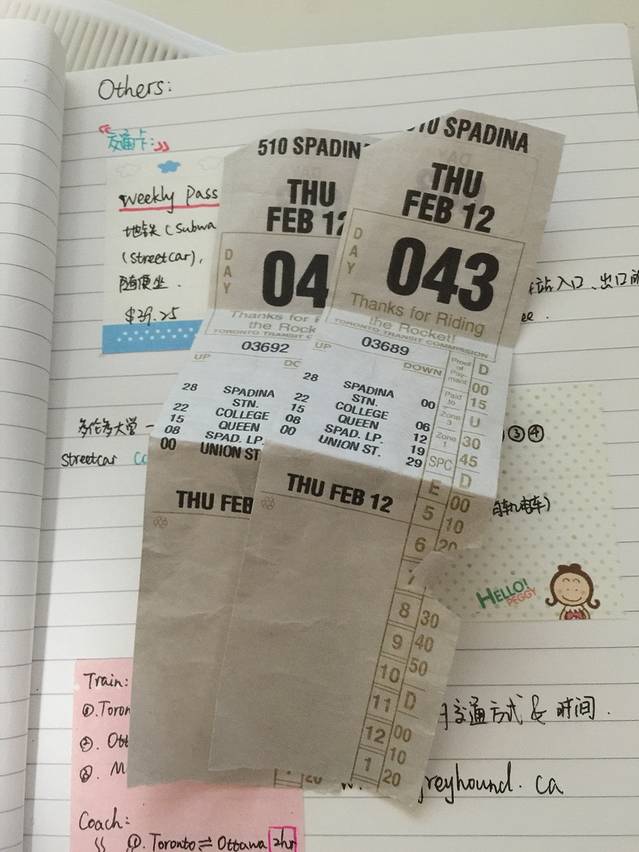 Others:
交通卡:
Weekly Pass
地铁 (Subwa
(Streetcar),
随便坐.
$39.25
站入口、出口
多伦多大学
Streetcar
③④
HELLO!
PEGGY
交通方式 & 时间.
greyhound.ca
Train:
①. Toron
②. Ott
③. M
Coach:
①. Toronto ⇌ Ottawa 2hr
510 SPADIN
THU
FEB 12
DAY
04
Thanks for
the Rocket
03692
UP
28 SPADINA
STN.
22 COLLEGE
15 QUEEN
08 SPAD. LP.
00 UNION ST.
THU FEB
10 SPADINA
THU
FEB 12
DAY
043
Thanks for Riding
the Rocket!
TORONTO TRANSIT COMMISSION
03689
UP DOWN
28 SPADINA
STN. 00
22 COLLEGE 06
15 QUEEN 12
08 SPAD. LP. 19
00 UNION ST. 29
THU FEB 12
Proof
of Pay-
ment
Paid
to
Zone
3
Zone
1
SPC
D
00
15
U
30
45
D
E 00
5 10
6 20
7
8 30
9 40
10 50
11 D
12 00
1 10
20